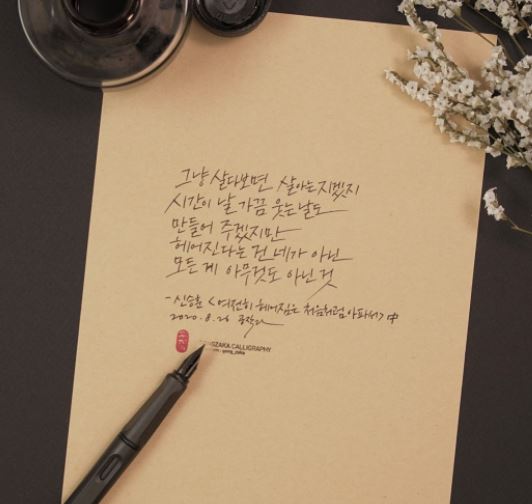 그냥 살다보면 살아는 지겠지
시간이 날 가끔 웃는 날도
만들어 주겠지만
헤어진다는 건 네가 아닌
모든 게 아무것도 아닌 것
- 신승훈 <여전히 헤어짐은 처음처럼 아파서> 中
2020.8.26 공작다
CALLIGRAPHY